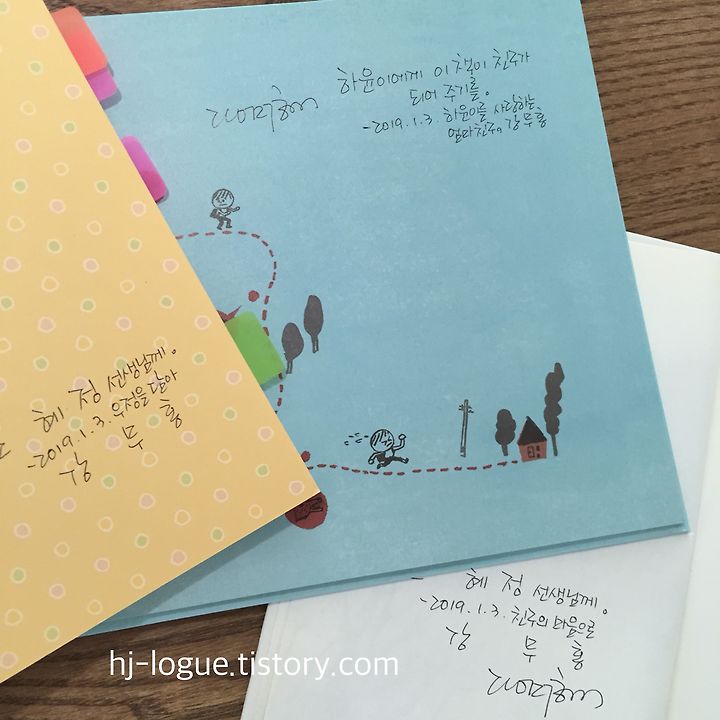 하윤이에게 이 책이 친구가
되어 주기를。
-2019.1.3. 하윤이를 사랑하는
엄마친구。강무홍
혜정 선생님께。
-2019.1.3. 우정을 담아
강무홍
혜정 선생님께。
-2019.1.3. 친구의 마음으로
강무홍
hj-logue.tistory.com